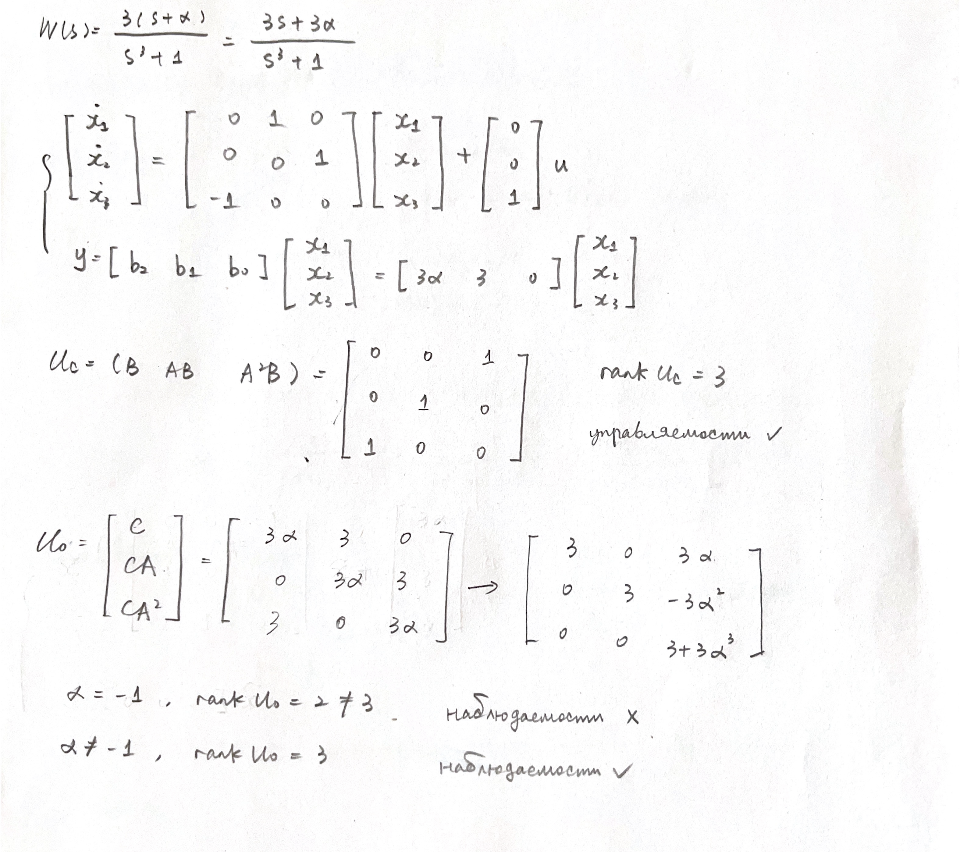 W(s) = 3(s+α) / s³+1 = 3s+3α / s³+1
{ [ẋ₁ ẋ₂ ẋ₃] = [0 1 0; 0 0 1; -1 0 0] [x₁ x₂ x₃] + [0 0 1] u
y = [b₂ b₁ b₀] [x₁ x₂ x₃] = [3α 3 0] [x₁ x₂ x₃]
Uc = (B AB A²B) = [0 0 1; 0 1 0; 1 0 0] rank Uc = 3
управляемости ✓
Uo = [C CA CA²] = [3α 3 0; 0 3α 3; 3 0 3α] → [3 0 3α; 0 3 -3α²; 0 0 3+3α³]
α = -1, rank Uo = 2 ≠ 3. наблюдаемости ×
α ≠ -1, rank Uo = 3 наблюдаемости ✓